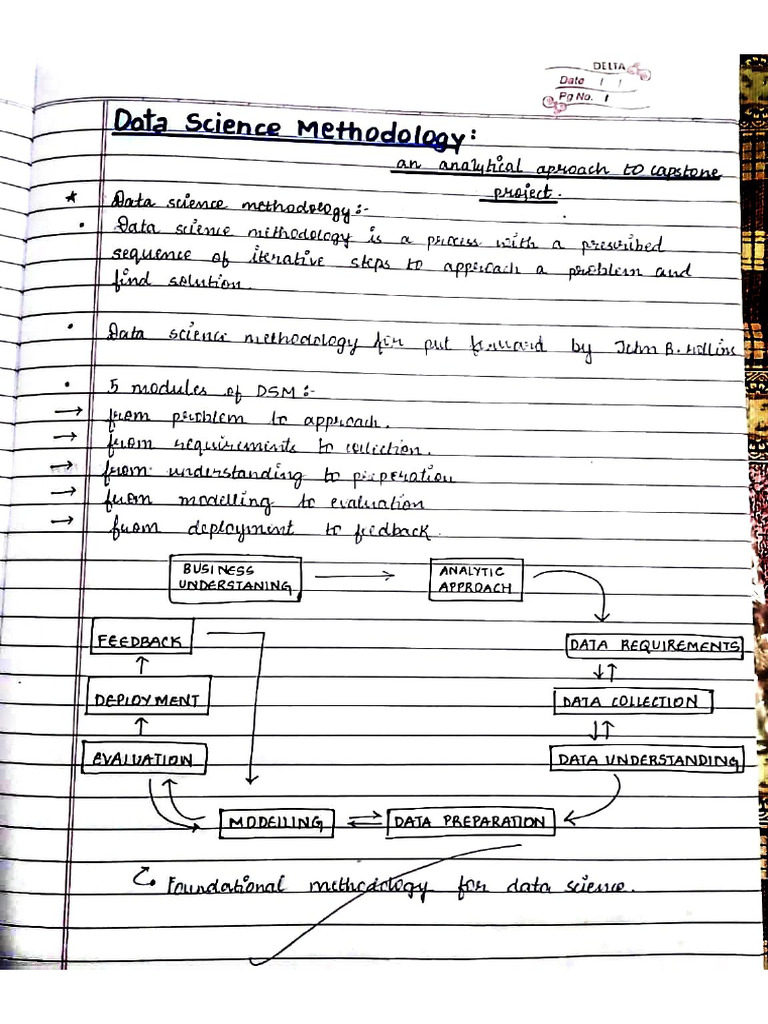 DELTA
Date / /
Pg No. 1
Data Science Methodology:
an analytical aproach to capstone
project.
* Data science methodology:-
• Data science methodology is a process with a prescribed
sequence of iterative steps to approach a problem and
find solution.
• Data science methodology for put forward by John B. Rollins
• 5 modules of DSM:-
→ from problem to approach.
→ from requirements to collection.
→ from understanding to preperation
→ from modelling to evaluation
→ from deployment to feedback.
BUSINESS UNDERSTANING → ANALYTIC APPROACH
FEEDBACK
DATA REQUIREMENTS
DEPLOYMENT
DATA COLLECTION
EVALUATION
DATA UNDERSTANDING
MODELLING ⇌ DATA PREPARATION
Foundational methodology for data science.